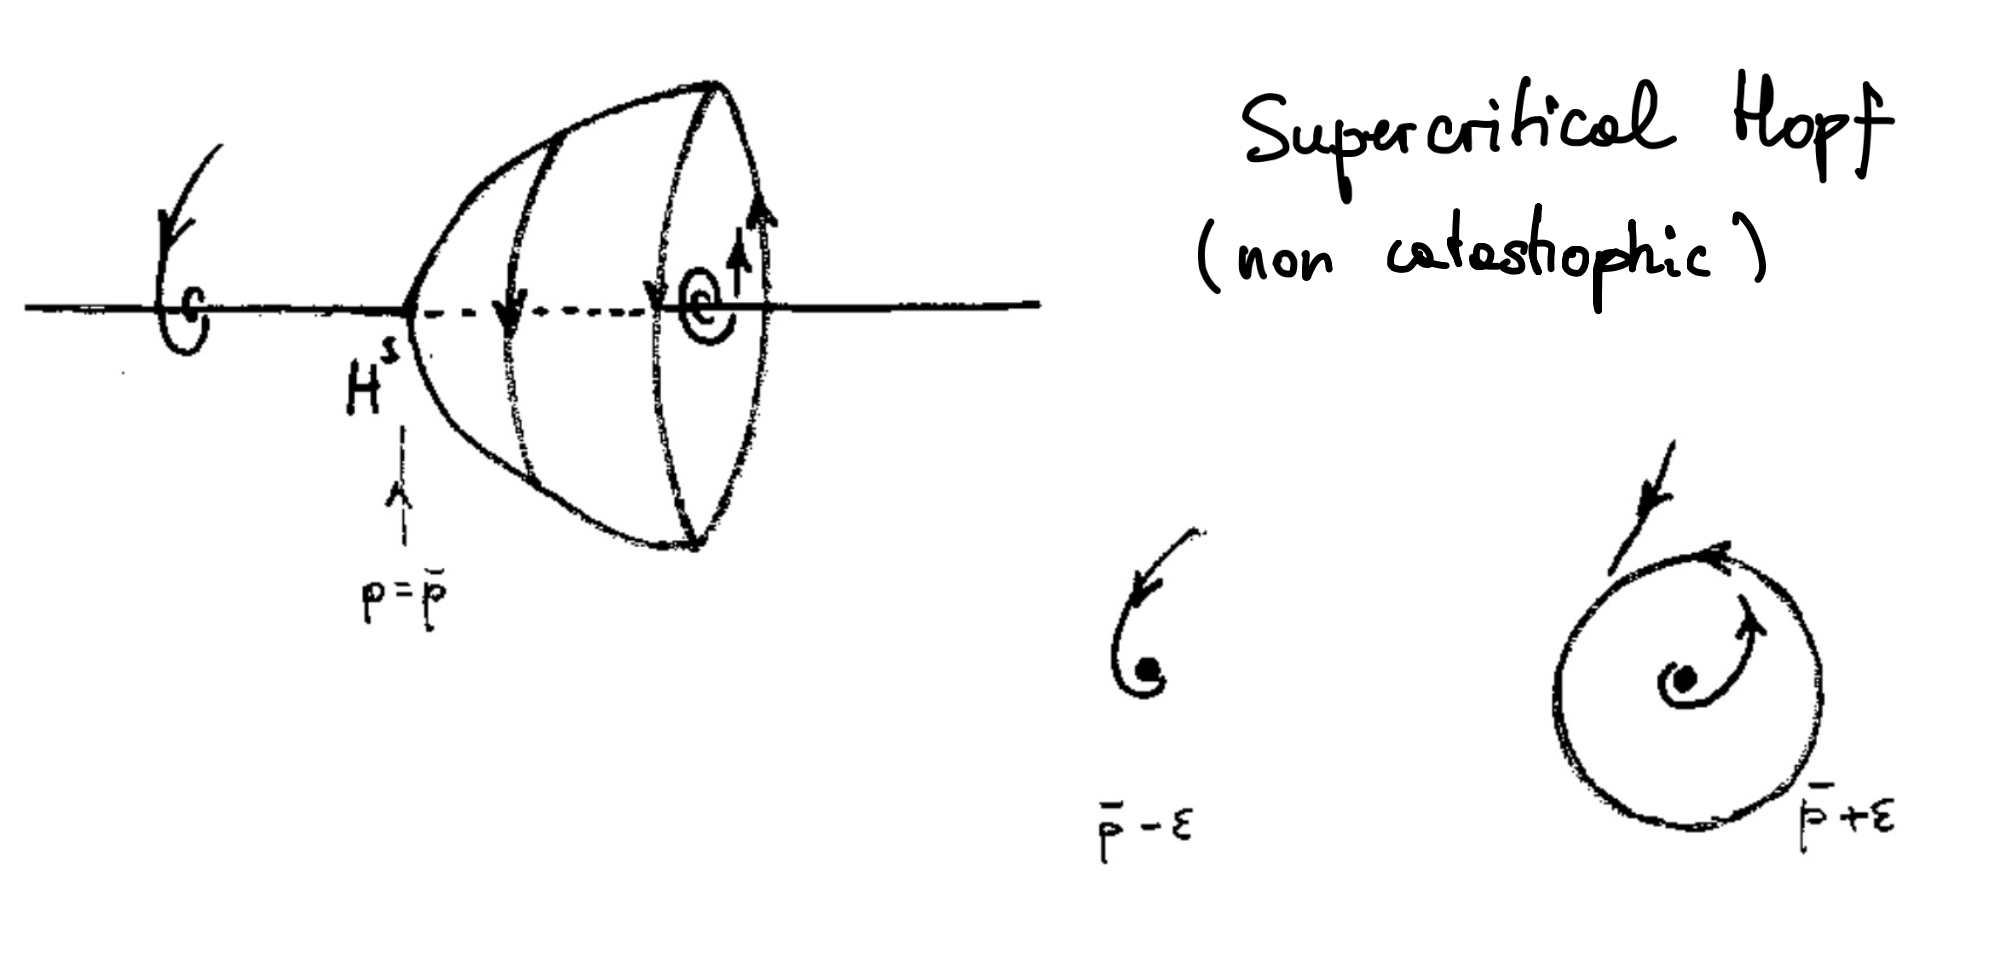 Supercritical Hopf
(non catastrophic)
Hˢ
p = p̄
p̄ - ε
p̄ + ε